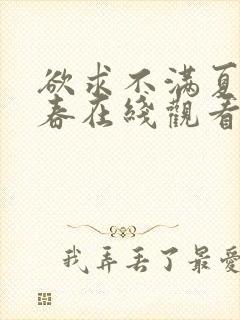 欲求不满夏
春在綫觀看
我弄丢了最愛